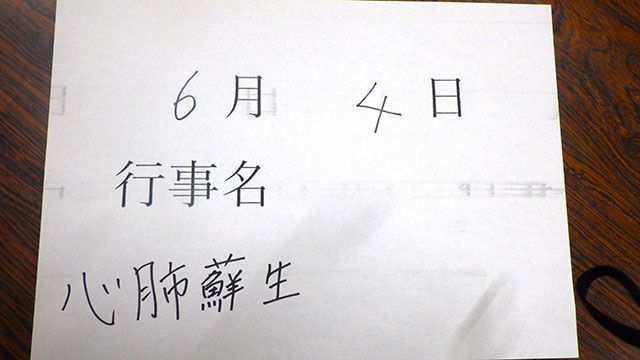 6月 4日
行事名
心肺蘇生